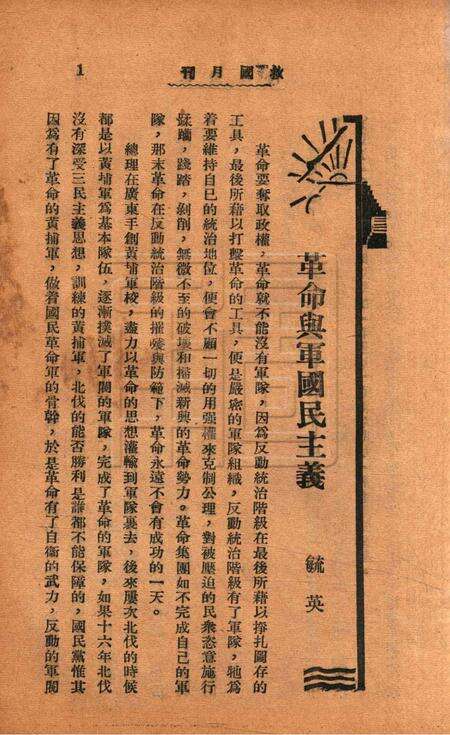 救國月刊
1
革命與軍國民主義
毓英
革命要奪取政權，革命就不能沒有軍隊，因爲反動統治階級在最後所藉以掙扎圖存的
工具，最後所藉以打擊革命的工具，便是嚴密的軍隊組織，反動統治階級有了軍隊，牠爲
着要維持自己的統治地位，便會不顧一切的用强權來克制公理，對被壓迫的民衆恣意施行
蹂躪，踐踏，剝削，無微不至的破壞和撲滅新興的革命勢力。革命集團如不完成自己的軍
隊，那末革命在反動統治階級的摧殘與防範下，革命永遠不會有成功的一天。
總理在廣東手創黃埔軍校，盡力以革命的思想灌輸到軍隊裏去，後來屢次北伐的時候
都是以黃埔軍爲基本隊伍，逐漸撲滅了軍閥的軍隊，完成了革命的軍隊，如果十六年北伐
沒有深受三民主義思想，訓練的黃埔軍，北伐的能否勝利是誰都不能保障的，國民黨惟其
因爲有了革命的黃埔軍，做着國民革命軍的骨幹，於是革命有了自衛的武力，反動的軍閥